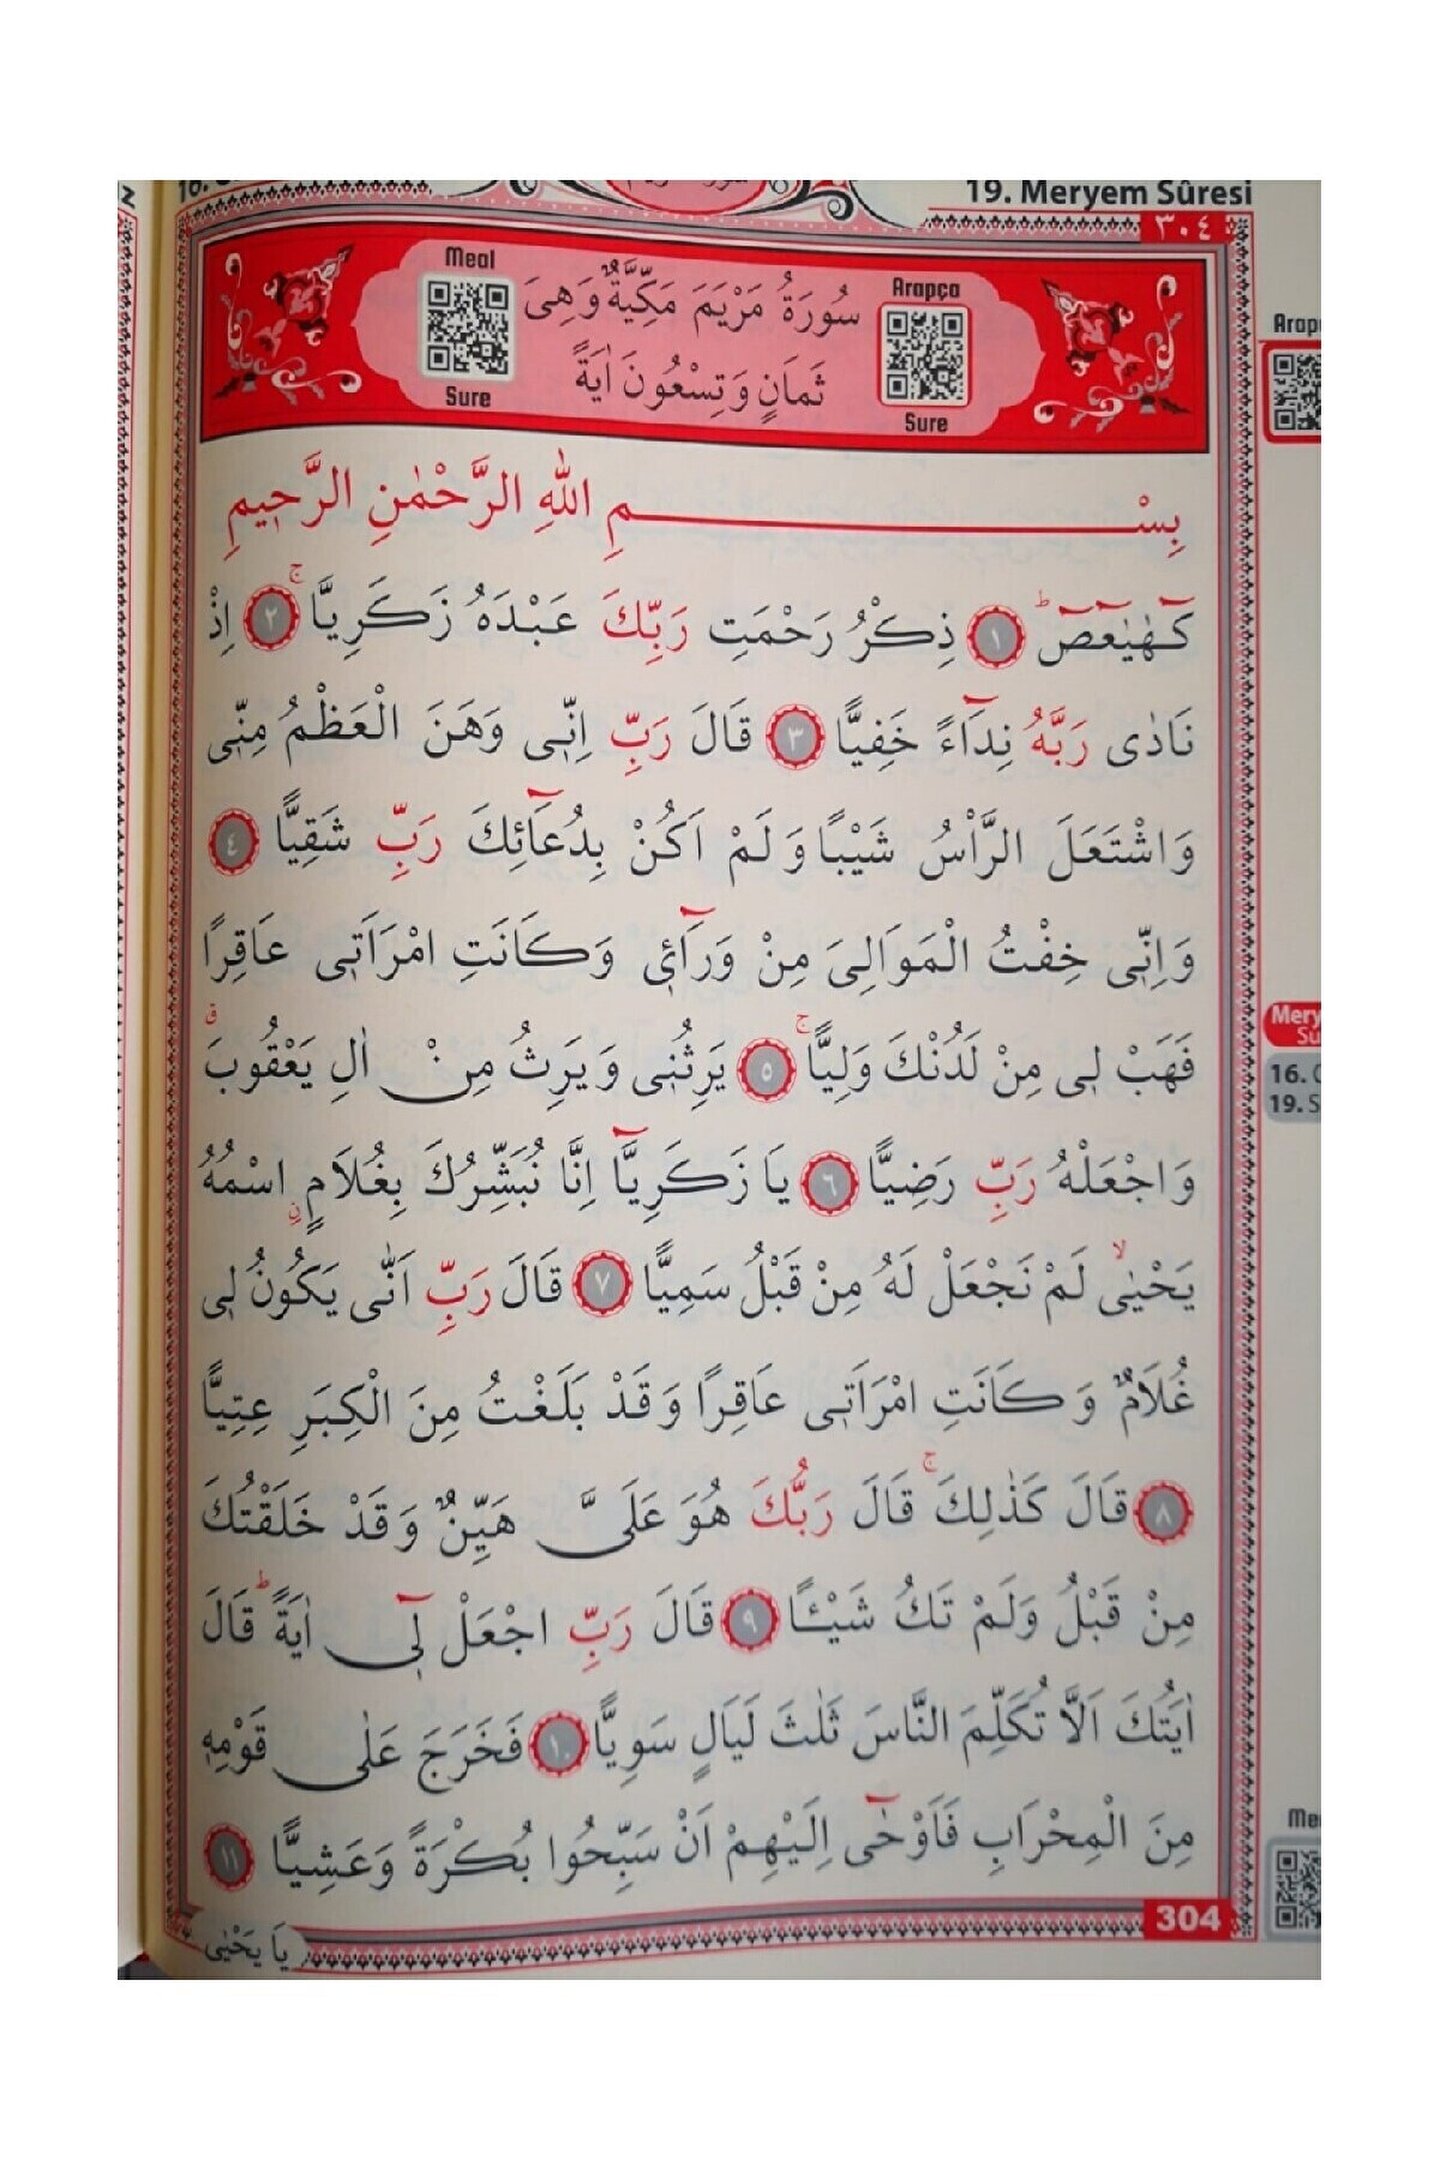 19. Meryem Sûresi
٣٠٤
Meal
Sure
سُورَةُ مَرْيَمَ مَكِّيَّةٌ وَهِىَ
ثَمَانٍ وَتِسْعُونَ اٰيَةً
Arapça
Sure
بِسْمِ اللّٰهِ الرَّحْمٰنِ الرَّحٖيمِ
كٓهٰيٰعٓصٓ ۜ ﴿١﴾ ذِكْرُ رَحْمَتِ رَبِّكَ عَبْدَهُ زَكَرِيَّا ۚ ﴿٢﴾ اِذْ
نَادٰى رَبَّهُ نِدَٓاءً خَفِيًّا ﴿٣﴾ قَالَ رَبِّ اِنّٖى وَهَنَ الْعَظْمُ مِنّٖى
وَاشْتَعَلَ الرَّاْسُ شَيْبًا وَلَمْ اَكُنْ بِدُعَٓائِكَ رَبِّ شَقِيًّا ﴿٤﴾
وَاِنّٖى خِفْتُ الْمَوَالِىَ مِنْ وَرَٓائٖى وَكَانَتِ امْرَاَتٖى عَاقِرًا
فَهَبْ لٖى مِنْ لَدُنْكَ وَلِيًّا ۚ ﴿٥﴾ يَرِثُنٖى وَيَرِثُ مِنْ اٰلِ يَعْقُوبَ ۗ
وَاجْعَلْهُ رَبِّ رَضِيًّا ﴿٦﴾ يَا زَكَرِيَّٓا اِنَّا نُبَشِّرُكَ بِغُلَامٍ ۨاسْمُهُ
يَحْيٰى ۙ لَمْ نَجْعَلْ لَهُ مِنْ قَبْلُ سَمِيًّا ﴿٧﴾ قَالَ رَبِّ اَنّٰى يَكُونُ لٖى
غُلَامٌ وَكَانَتِ امْرَاَتٖى عَاقِرًا وَقَدْ بَلَغْتُ مِنَ الْكِبَرِ عِتِيًّا
﴿٨﴾ قَالَ كَذٰلِكَ ۚ قَالَ رَبُّكَ هُوَ عَلَىَّ هَيِّنٌ وَقَدْ خَلَقْتُكَ
مِنْ قَبْلُ وَلَمْ تَكُ شَيْـًٔا ﴿٩﴾ قَالَ رَبِّ اجْعَلْ لٖٓى اٰيَةً ۜ قَالَ
اٰيَتُكَ اَلَّا تُكَلِّمَ النَّاسَ ثَلٰثَ لَيَالٍ سَوِيًّا ﴿١٠﴾ فَخَرَجَ عَلٰى قَوْمِهٖ
مِنَ الْمِحْرَابِ فَاَوْحٰٓى اِلَيْهِمْ اَنْ سَبِّحُوا بُكْرَةً وَعَشِيًّا ﴿١١﴾
304
يَا يَحْيٰى